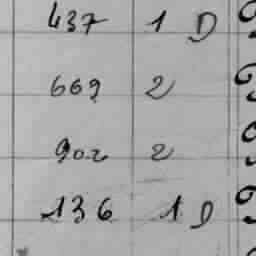 437 1 D
669 2
902 2
136 1 D